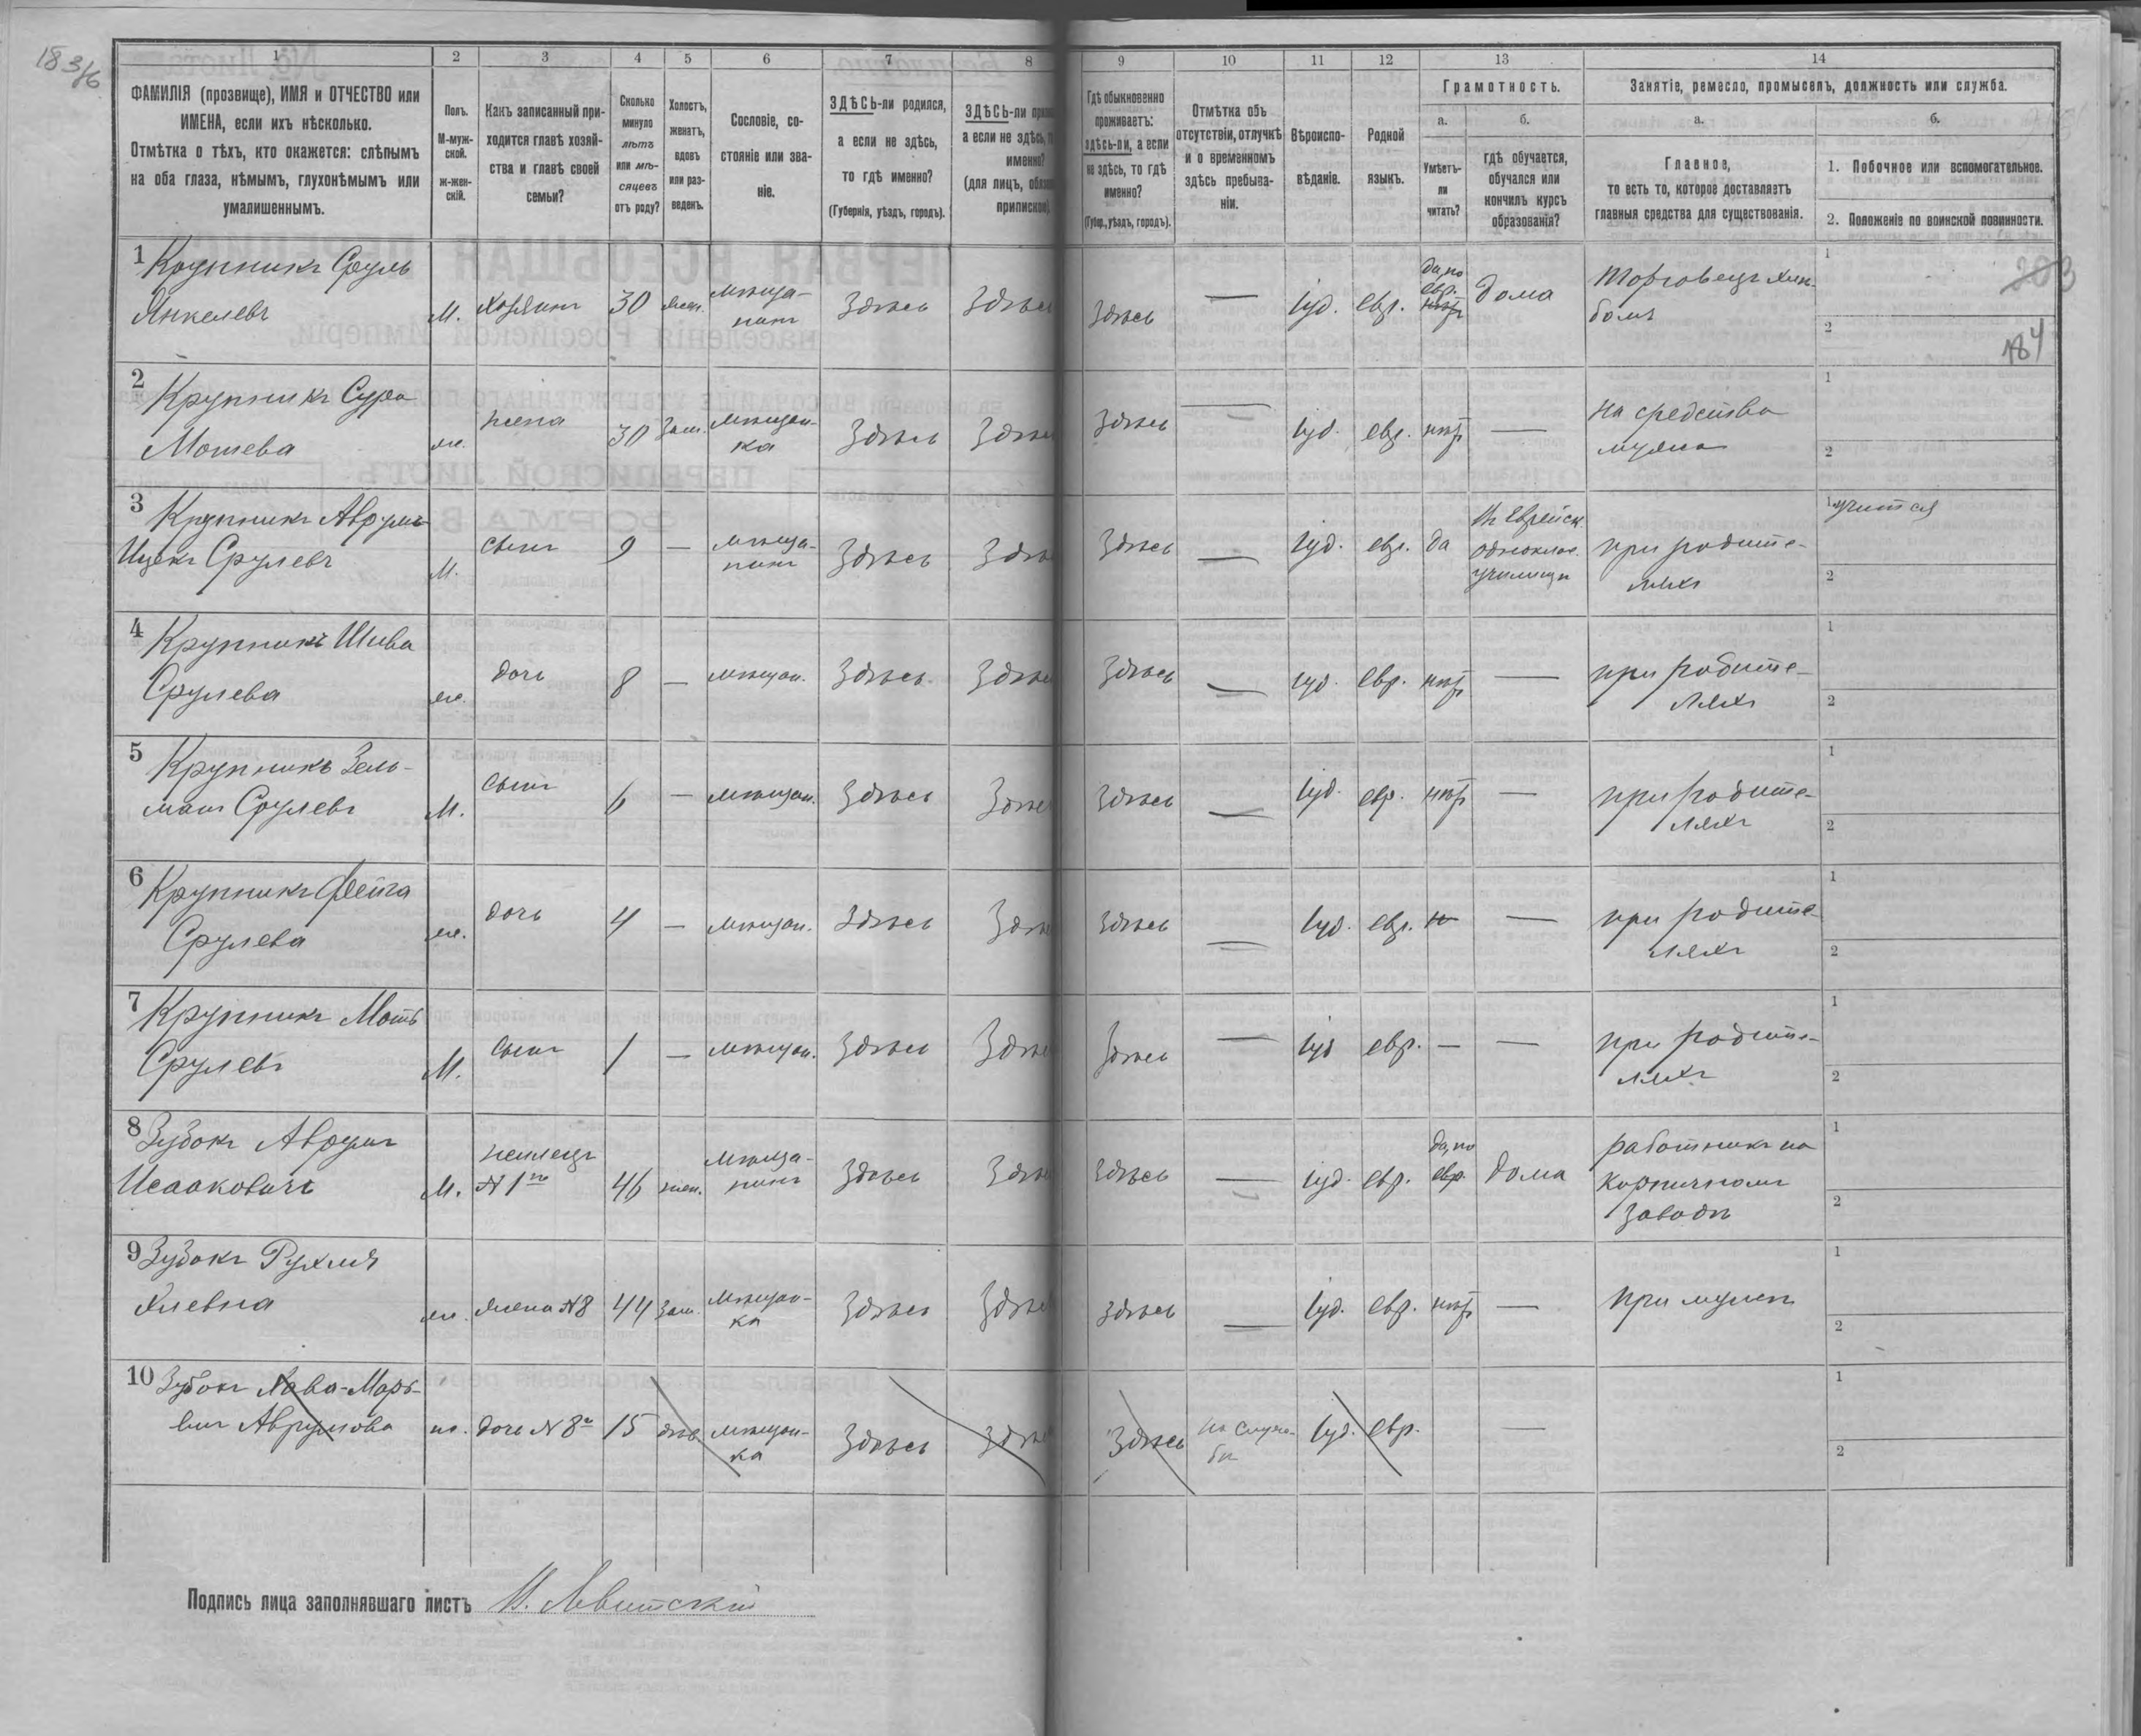 1 2 3 4 5 6 7 8 9 10 11 12 13 14
ФАМИЛІЯ (прозвище), ИМЯ и ОТЧЕСТВО или
ИМЕНА, если ихъ нѣсколько.
Отмѣтка о тѣхъ, кто окажется: слѣпымъ
на оба глаза, нѣмымъ, глухонѣмымъ или
умалишеннымъ.
Полъ.
М-муж-
ской.
ж-жен-
скій.
Какъ записанный при-
ходится главѣ хозяй-
ства и главѣ своей
семьи?
Сколько
минуло
лѣтъ
или мѣ-
сяцевъ
отъ роду?
Холостъ,
женатъ,
вдовъ
или раз-
веденъ.
Сословіе, со-
стояніе или зва-
ніе.
ЗДѢСЬ-ли родился,
а если не здѣсь,
то гдѣ именно?
(Губернія, уѣздъ, городъ).
ЗДѢСЬ-ли
а если не здѣсь,
именно?
(для лицъ,
Гдѣ обыкновенно
проживаетъ:
здѣсь-ли, а если
не здѣсь, то гдѣ
именно?
(Губер., уѣздъ, городъ).
Отмѣтка объ
отсутствіи, отлучкѣ
и о временномъ
здѣсь пребыва-
ніи.
Вѣроиспо-
вѣданіе.
Родной
языкъ.
Грамотность.
а.
Умѣетъ-
ли
читать?
б.
гдѣ обучается,
обучался или
кончилъ курсъ
образованія?
Занятіе, ремесло, промыселъ, должность или служба.
а.
Главное,
то есть то, которое доставляетъ
главныя средства для существованія.
б.
1. Побочное или вспомогательное.
2. Положеніе по воинской повинности.
1 Крупникъ Сруль
Янкелевъ
М. Хозяинъ 30 жен. мѣща-
нинъ
Здѣсь Здѣсь Здѣсь — іуд. евр. да, по
евр.
дома Торговецъ хлѣ-
бомъ
1
2
184
2 Крупникъ Сура
Мошева
ж. жена 30 Зам. мѣщан-
ка
Здѣсь Здѣсь Здѣсь — іуд. евр. нѣтъ — на средства
мужа
1
2
3 Крупникъ Аврумъ
Ицекъ Срулевъ
М. сынъ 9 — мѣща-
нинъ
Здѣсь Здѣсь Здѣсь — іуд. евр. да въ Еврейск.
одноклас.
училищѣ
при родите-
ляхъ
1 учится
2
4 Крупникъ Шива
Срулева
ж. дочь 8 — мѣщан. Здѣсь Здѣсь Здѣсь — іуд. евр. нѣтъ — при родите-
ляхъ
1
2
5 Крупникъ Зель-
манъ Срулевъ
М. сынъ 6 — мѣщан. Здѣсь Здѣсь Здѣсь — іуд. евр. нѣтъ — при родите-
ляхъ
1
2
6 Крупникъ Фейга
Срулева
ж. дочь 4 — мѣщан. Здѣсь Здѣсь Здѣсь — іуд. евр. — при родите-
ляхъ
1
2
7 Крупникъ Моть
Срулевъ
М. сынъ 1 — мѣщан. Здѣсь Здѣсь Здѣсь — іуд евр. — — при родите-
ляхъ
1
2
8 Зубокъ Аврумъ
Исааковичъ
М. жилецъ
N 1го
46 жен. мѣща-
нинъ
Здѣсь Здѣсь Здѣсь — іуд. евр. да, по
евр.
дома работникъ на
Кирпичномъ
заводѣ
1
2
9 Зубокъ Рухля
Хлевна
ж. жена N8 44 Зам. мѣщан-
ка
Здѣсь Здѣсь Здѣсь — іуд. евр. нѣтъ — при мужѣ
1
2
10 Зубокъ Хава-Марь-
Аврумова
ж. дочь N 8 15 дѣв. мѣщан-
ка
Здѣсь Здѣсь Здѣсь на служ-
бѣ
іуд. евр. —
1
2
Подпись лица заполнявшаго листъ